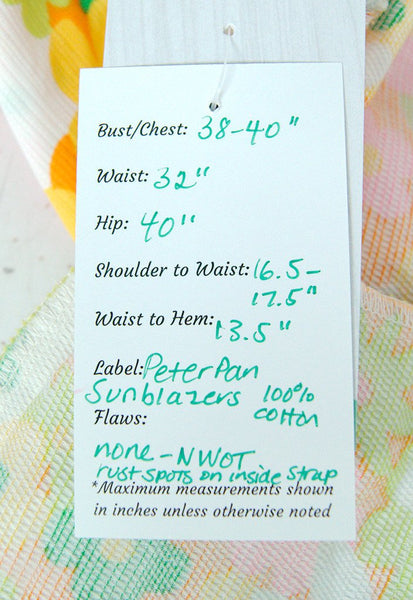 Bust/Chest: 38-40"
Waist: 32"
Hip: 40"
Shoulder to Waist: 16.5-
17.5"
Waist to Hem: 13.5"
Label: Peter Pan
Sunblazers 100% cotton
Flaws:
none - NWOT
rust spots on inside strap
*Maximum measurements shown
in inches unless otherwise noted